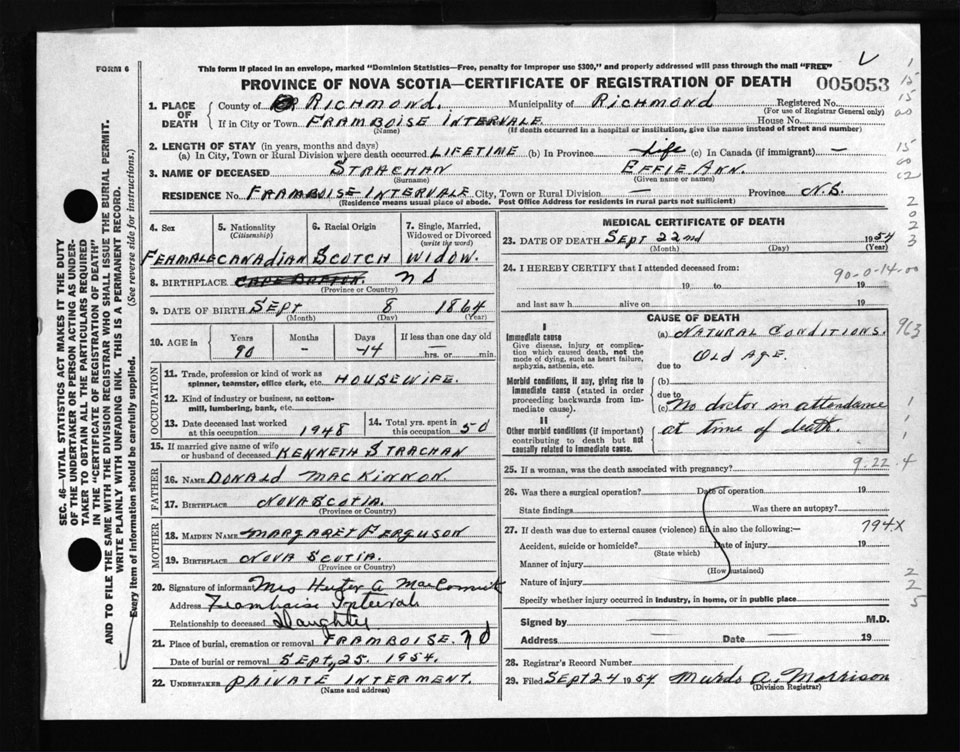 FORM 6
This form if placed in an envelope, marked "Dominion Statistics—Free, penalty for improper use $300," and properly addressed will pass through the mail "FREE"
PROVINCE OF NOVA SCOTIA—CERTIFICATE OF REGISTRATION OF DEATH 005053
1. PLACE OF DEATH County of RICHMOND. Municipality of RICHMOND Registered No.
(For use of Registrar General only)
If in City or Town FRAMBOISE INTERVALE House No.
(Name) (If death occurred in a hospital or institution, give the name instead of street and number)
2. LENGTH OF STAY (in years, months and days)
(a) In City, Town or Rural Division where death occurred LIFETIME (b) In Province Life (c) In Canada (if immigrant) —
3. NAME OF DECEASED STRACHAN EFFIE ANN.
(Surname) (Given name or names)
RESIDENCE No. FRAMBOISE INTERVALE City, Town or Rural Division — Province N.S.
(Residence means usual place of abode. Post Office Address for residents in rural parts not sufficient)
4. Sex 5. Nationality (Citizenship) 6. Racial Origin 7. Single, Married, Widowed or Divorced (write the word)
FEAMALE CANADIAN SCOTCH WIDOW.
8. BIRTHPLACE CAPE BRETON. NS
(Province or Country)
9. DATE OF BIRTH SEPT 8 1864
(Month) (Day) (Year)
10. AGE in Years Months Days If less than one day old
90 — -14 — hrs. or min.
OCCUPATION
11. Trade, profession or kind of work as spinner, teamster, office clerk, etc. HOUSEWIFE.
12. Kind of industry or business, as cotton-mill, lumbering, bank, etc.
13. Date deceased last worked at this occupation 1948 14. Total yrs. spent in this occupation 50
15. If married give name of wife or husband of deceased KENNETH STRACHAN
FATHER
16. NAME DONALD MACKINNON.
17. BIRTHPLACE NOVA SCOTIA.
(Province or Country)
MOTHER
18. MAIDEN NAME MARGARET FERGUSON
19. BIRTHPLACE NOVA SCOTIA.
(Province or Country)
20. Signature of informant Mrs A. MacCormick
Address Framboise Intervale
Relationship to deceased Daughter
21. Place of burial, cremation or removal FRAMBOISE. NS
Date of burial or removal SEPT, 25. 1954.
22. UNDERTAKER PRIVATE INTERMENT.
(Name and address)
MEDICAL CERTIFICATE OF DEATH
23. DATE OF DEATH SEPT 22nd 1954
(Month) (Day) (Year)
24. I HEREBY CERTIFY that I attended deceased from: 90-0-14-00
19 to 19
and last saw h alive on 19
CAUSE OF DEATH
I
Immediate cause
Give disease, injury or complication which caused death, not the mode of dying, such as heart failure, asphyxia, asthenia, etc.
(a) NATURAL CONDITIONS.
OLD AGE.
due to
Morbid conditions, if any, giving rise to immediate cause (stated in order proceeding backwards from immediate cause).
(b)
due to
(c) No doctor in attendance
at time of death.
II
Other morbid conditions (if important) contributing to death but not causally related to immediate cause.
25. If a woman, was the death associated with pregnancy? 9.22.4
26. Was there a surgical operation? Date of operation 19
State findings Was there an autopsy?
27. If death was due to external causes (violence) fill in also the following:— 794X
Accident, suicide or homicide? Date of injury 19
(State which)
Manner of injury
(How sustained)
Nature of injury
Specify whether injury occurred in industry, in home, or in public place
Signed by — M.D.
Address — Date — 19
28. Registrar's Record Number
29. Filed SEPT 24 1954 Murdo A. Morrison
(Division Registrar)
SEC. 46—VITAL STATISTICS ACT MAKES IT THE DUTY
OF THE UNDERTAKER OR PERSON ACTING AS UNDER-
TAKER TO OBTAIN ALL THE PARTICULARS REQUIRED
IN THE "CERTIFICATE OF REGISTRATION OF DEATH"
AND TO FILE THE SAME WITH THE DIVISION REGISTRAR WHO SHALL ISSUE THE BURIAL PERMIT.
WRITE PLAINLY WITH UNFADING INK. THIS IS A PERMANENT RECORD.
Every item of information should be carefully supplied. (See reverse side for instructions.)